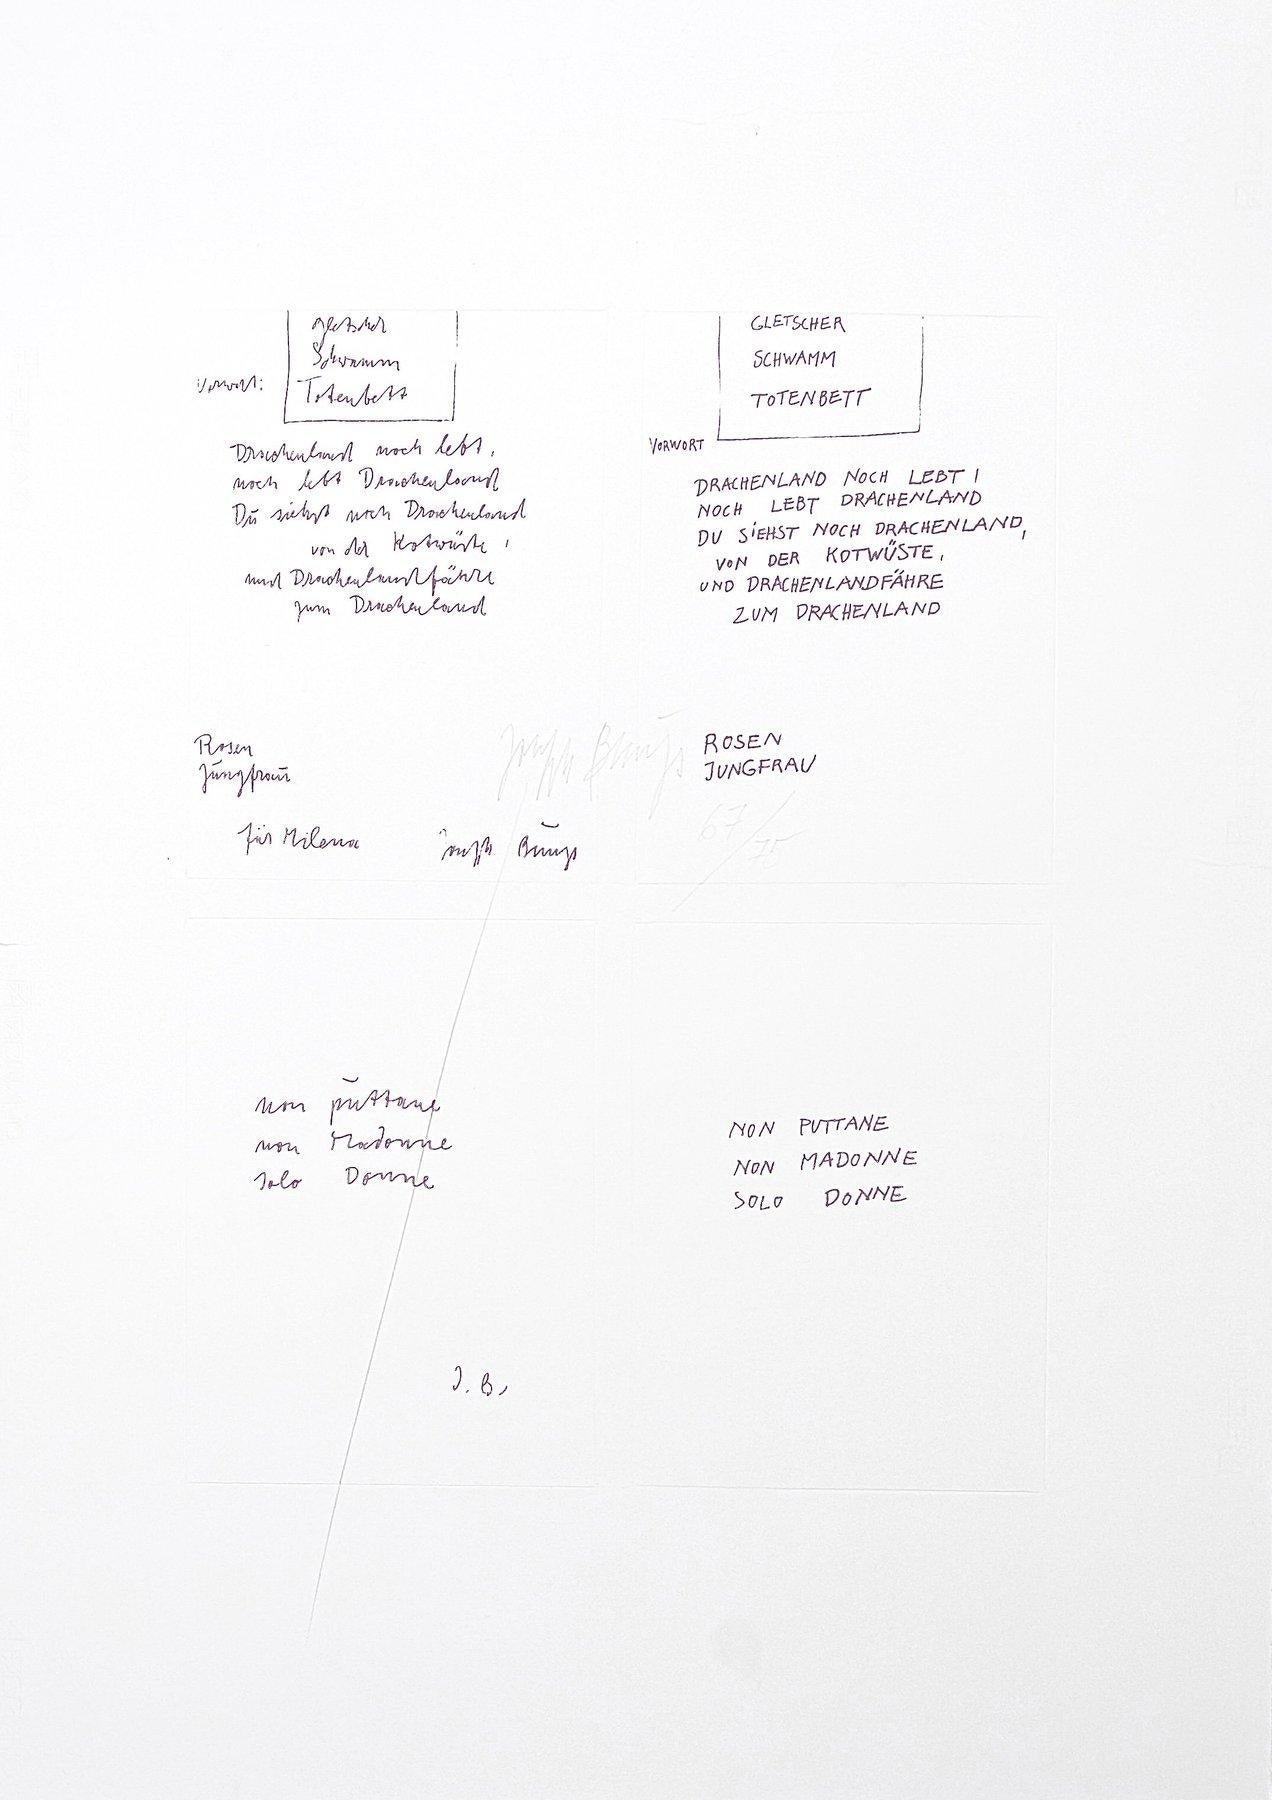 gletscher
Schwamm
Totenbett
Vorwort:
Drachenland noch lebt,
noch lebt Drachenland
Du siehst noch Drachenland
von der Kotwüste,
und Drachenlandfähre
zum Drachenland
Rosen
Jungfrau
für Milena
Joseph Beuys
GLETSCHER
SCHWAMM
TOTENBETT
VORWORT
DRACHENLAND NOCH LEBT,
NOCH LEBT DRACHENLAND
DU SIEHST NOCH DRACHENLAND,
VON DER KOTWÜSTE,
UND DRACHENLANDFÄHRE
ZUM DRACHENLAND
Joseph Beuys
ROSEN
JUNGFRAU
67/75
non puttane
non Madonne
solo Donne
J. B.
NON PUTTANE
NON MADONNE
SOLO DONNE